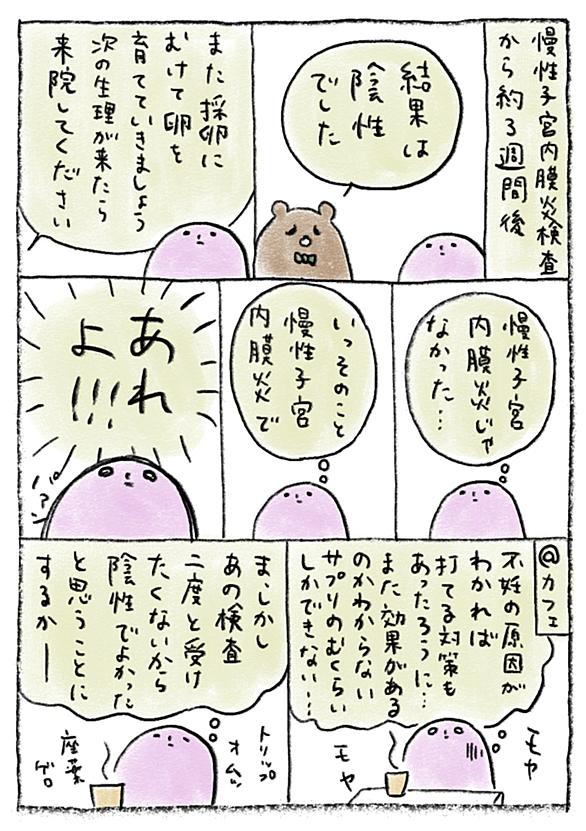 慢性子宮内膜炎検査
から約3週間後
結果は
陰性
でした
また採卵に
むけて卵を
育てていきましょう
次の生理が来たら
来院してください
慢性子宮
内膜炎じゃ
なかった…
いっそのこと
慢性子宮
内膜炎で
あれ
よ!!!
@カフェ
不妊の原因が
わかれば
打てる対策も
あったろうに…
また効果がある
のかわからない
サプリのむくらい
しかできない…
モヤ
モヤ
ま、しかし
あの検査
二度と受け
たくないから
陰性でよかった
と思うことに
するかー
トリップ
オムツ
座薬
ゲロ